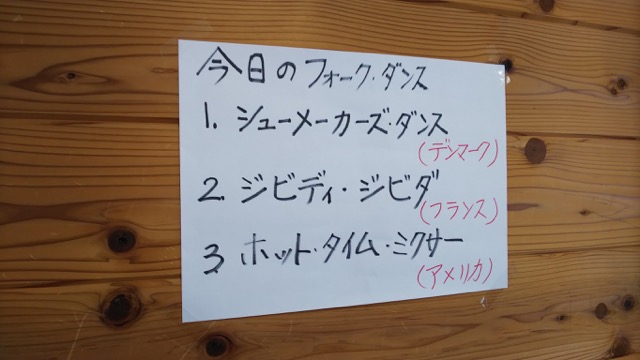 今日のフォーク・ダンス
1. シューメーカーズ・ダンス
(デンマーク)
2. ジビディ・ジビダ
(フランス)
3. ホット・タイム・ミクサー
(アメリカ)